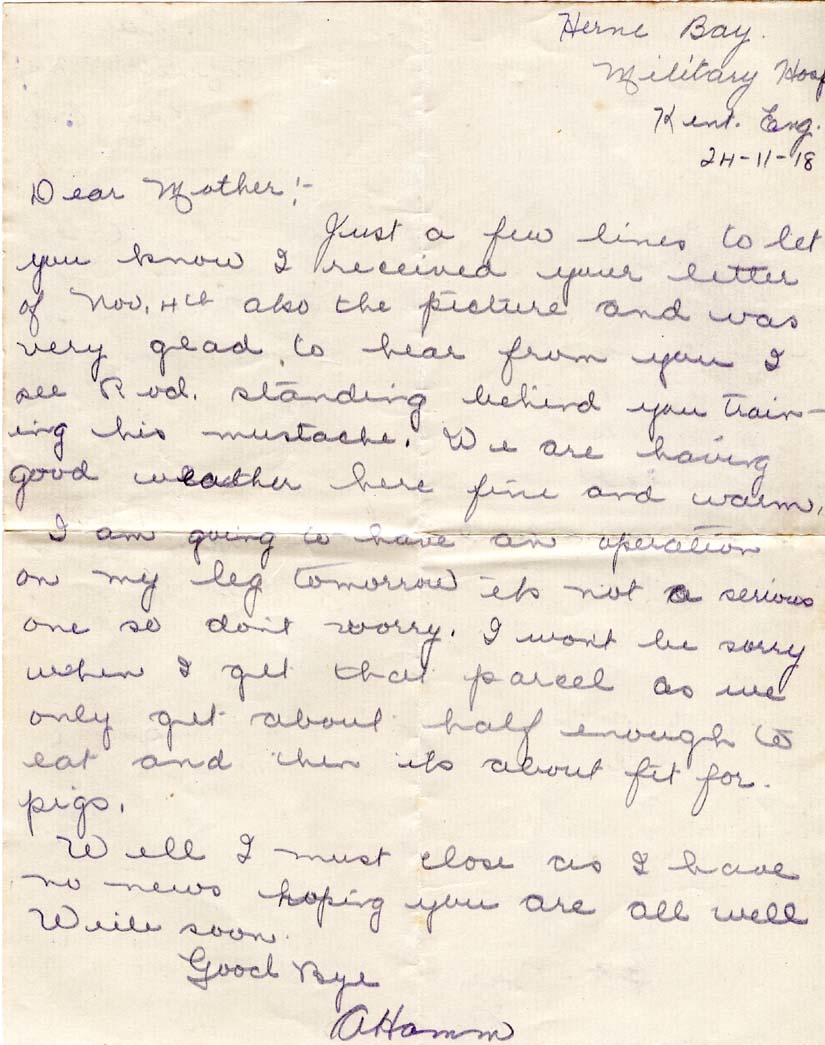 Herne Bay.
Military Hosp
Kent. Eng.
24-11-18
Dear Mother:-
Just a few lines to let
you know I received your letter
of Nov. 4th also the picture and was
very glad to hear from you I
see Rod. standing behind you train-
ing his mustache. We are having
good weather here fine and warm.
I am going to have an operation
on my leg tomorrow its not a serious
one so dont worry. I wont be sorry
when I get that parcel as we
only get about half enough to
eat and then its about fit for.
pigs.
Well I must close as I have
no news hoping you are all well
Write soon.
Good Bye
AHamm